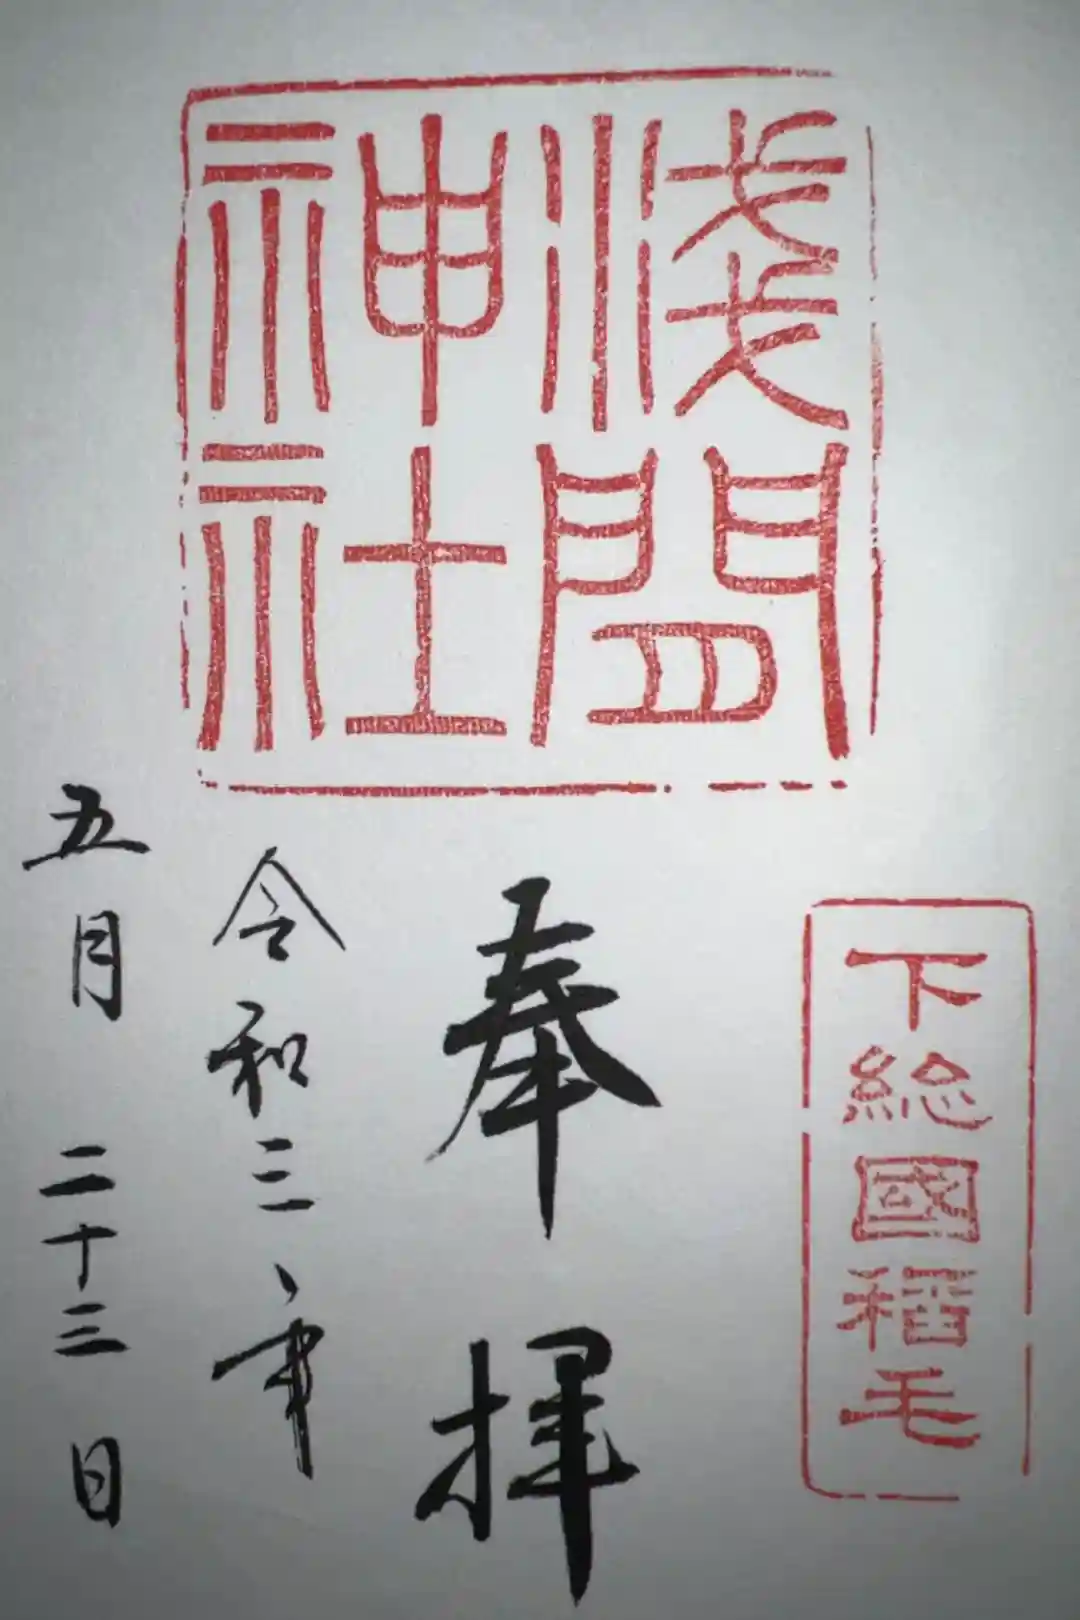 淺間
神社
下総國稲毛
奉拝
令和三年
五月二十三日